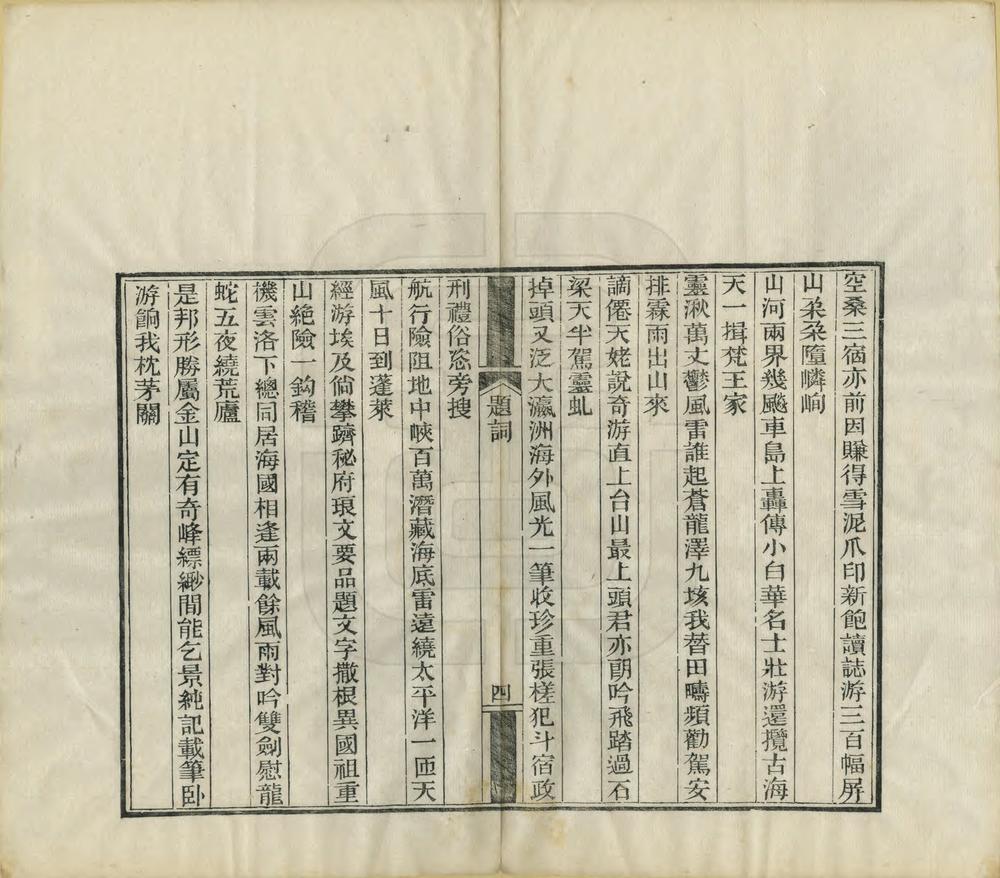 空桑三宿亦前因賺得雪泥爪印新飽讀誌游三百幅屏
山朵朵墮嶙峋
山河兩界幾飈車島上轟傳小白華名士壯游還攬古海
天一揖梵王家
靈湫萬丈鬱風雷誰起蒼龍澤九垓我替田疇頻勸駕安
排霖雨出山來
謫僊天姥說奇游直上台山最上頭君亦朗吟飛踏過石
梁天半駕靈虬
掉頭又泛大瀛洲海外風光一筆收珍重張槎犯斗宿政
題詞
四
刑禮俗恣旁搜
航行險阻地中峽百萬潛藏海底雷遠繞太平洋一匝天
風十日到蓬萊
經游埃及倘攀躋秘府琅文要品題文字撒根異國祖重
山絶險一鈎稽
機雲洛下總同居海國相逢兩載餘風雨對吟雙劍慰龍
蛇五夜繞荒廬
是邦形勝屬金山定有奇峰縹緲間能乞景純記載筆卧
游餉我枕茅關